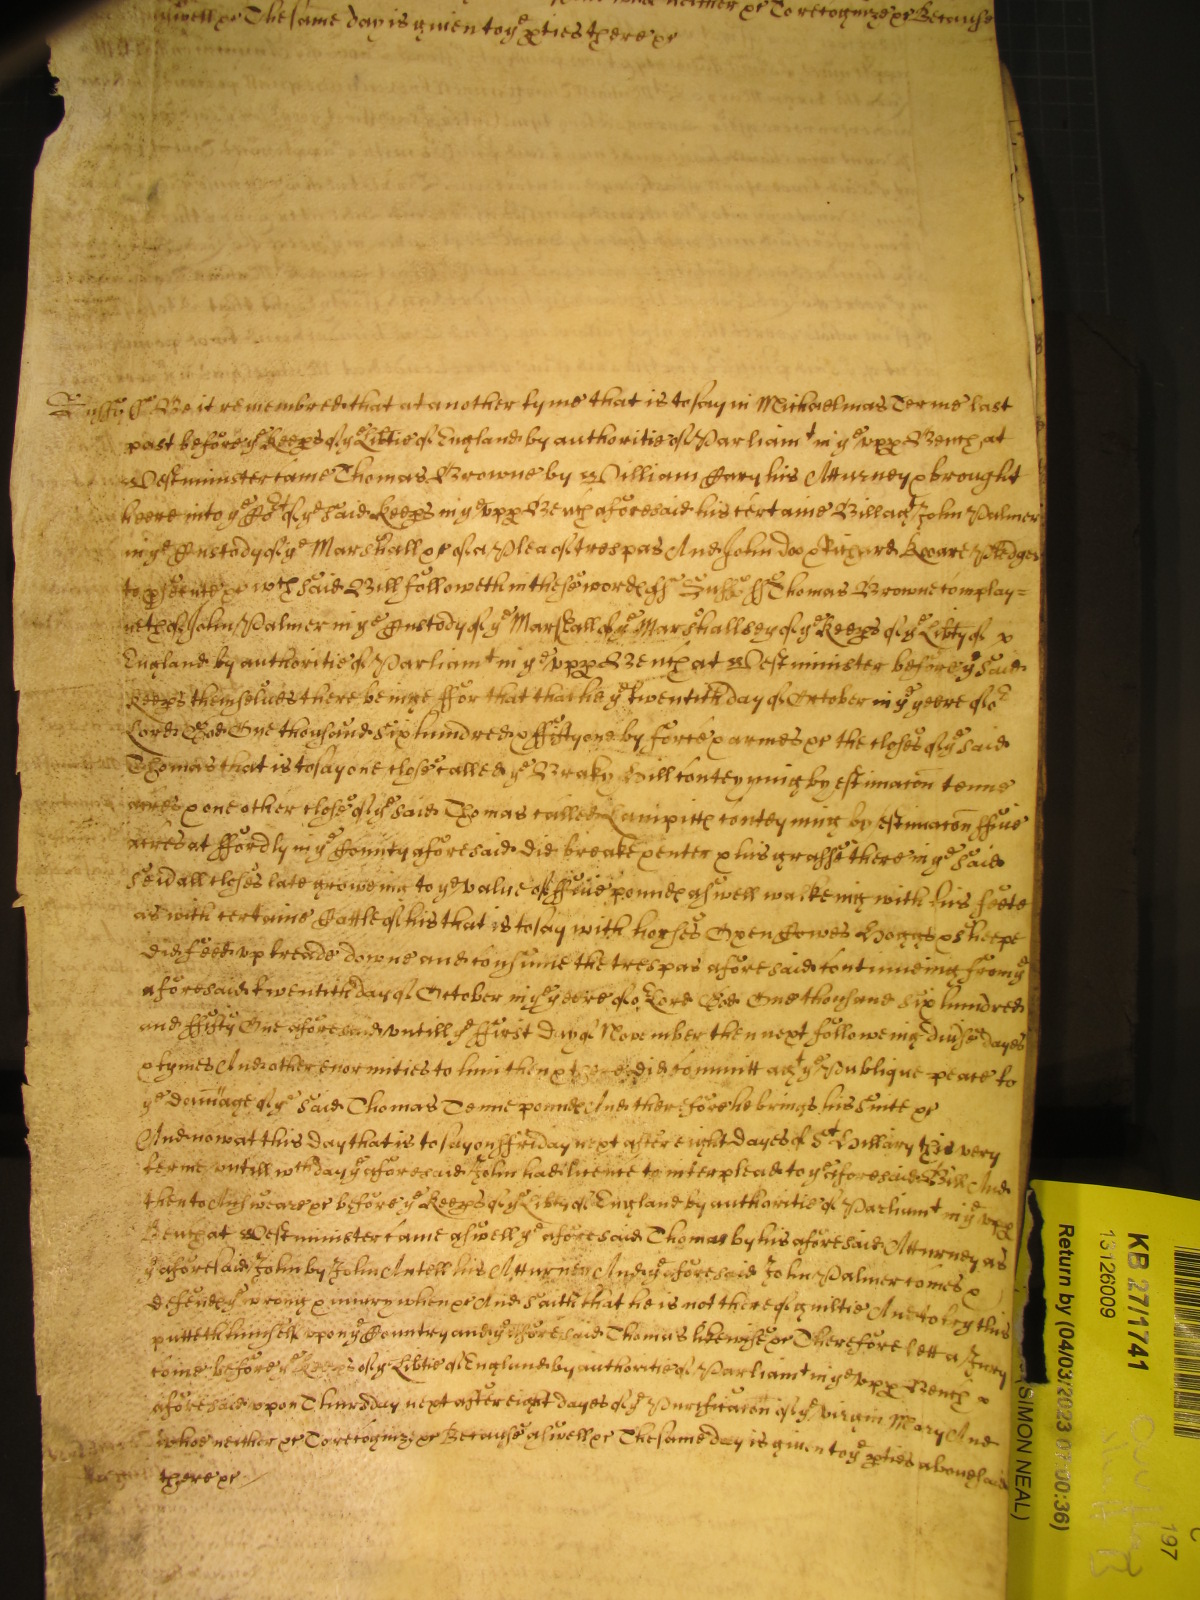 aswell &c The same day is given to ye pties there &c
Suff ss Be it remembred that at another tyme that is to say in Michaelmas Terme last
past before ye Keeps of ye Libtie of England by authoritie of Parliamt in ye vpp Bench at
Westminster came Thomas Browne by William Gary his Atturney & brought
heere into ye Cort of ye said Keeps in ye vpp Bench aforesaid his certaine Bill agt John Palmer
in ye Custody of ye Marshall &c of a Plea of trespas And John doo & Richard Pledges
to psecute &c wch said Bill followeth in these words ss Suff ss Thomas Browne complay=
neth of John Palmer in ye Custody of ye Marshall of ye Marshallsey of ye Keeps of ye Libty of
England by authoritie of Parliamt in ye vpp Bench at Westminster before ye said
Keeps themselues there beinge ffor that that he ye twentith day of October in ye yeere of or
Lord God One thousand six hundred & ffifty one by force & armes &c the closes of ye said
Thomas that is to say one close called ye Braky Hill conteyning by estimacon tenne
acres & one other close of ye said Thomas called Lampitts conteyning by estimacon ffiue
acres at ffordly in ye County aforesaid did breake & enter & his grasse there in ye said
seuall closes late groweing to ye value of ffiue pounds aswell walkeing with his feete
as with certaine Cattle of his that is to say with horses Oxen Cowes Hoggs & sheepe
did feed vp treade downe and consume the trespas aforesaid continueing from ye
aforesaid twentith day of October in ye yeere of or Lord God One thousand six hundred
and ffifty One aforesaid vntill ye ffirst day of November then next followeing diuse dayes
& tymes And other enormities to him then & there did committ agt ye Publique peace to
ye damage of ye said Thomas Tenne pounds And therefore he brings his suite &c
And now at this day that is to say on ffriday next after eight dayes of St Hillary this very
terme vntill wch day ye aforesaid John had licence to interplead to ye aforesaid Bill And
then to Answeare &c before ye Keeps of ye Libty of England by authoritie of Parliamt in ye vpp
Bench at Westminster came aswell ye aforesaid Thomas by his aforesaid Atturney as
ye aforesaid John by John Antell his Atturney And ye aforesaid John Palmer comes &
defends ye wrong & iniury when &c And saith that he is not thereof guiltie And to try this
putteth himself vpon ye Country and ye aforesaid Thomas likewise &c Therefore lett a Jury
come before ye Keeps of ye Libtie of England by authoritie of Parliamt in ye vpp Bench
aforesaid vpon Thursday next after eight dayes of ye Purificacon of ye virgin Mary And
whoe neither &c To recognize &c Because aswell &c The same day is given to ye pties abouesaid
there &c
KB 27/1741
13126009
Return by (04/03/2023 07:00:36)
(SIMON NEAL)
197